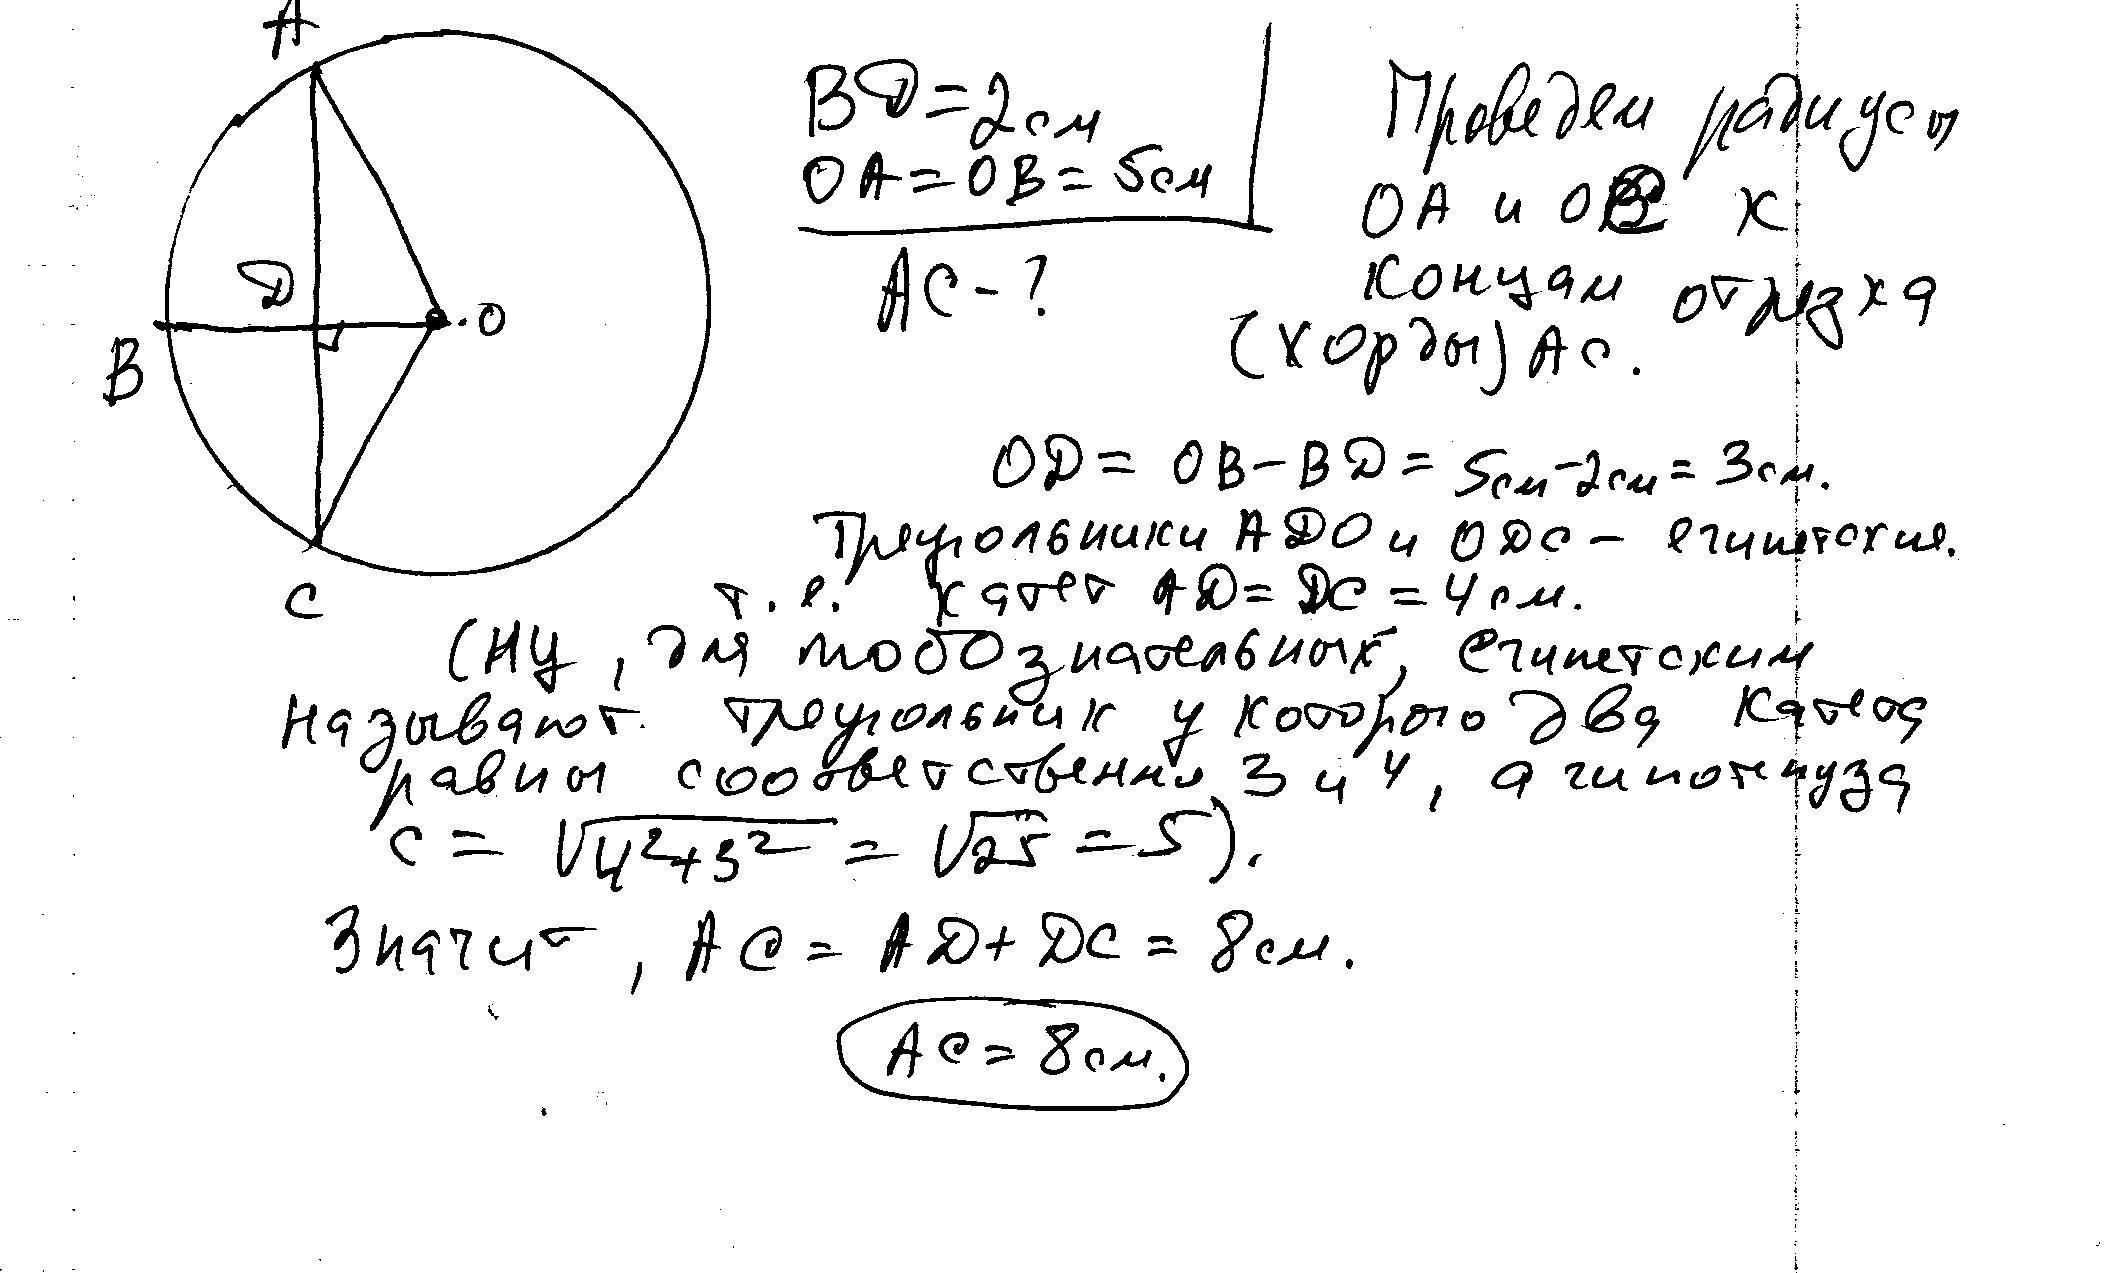 A
D
B
O
C
BD = 2см
OA = OB = 5см
AC - ?
Проведем радиусы
OA и OC к
концам отрезка
(хорды) AC.
OD = OB - BD = 5см - 2см = 3см.
Треугольники ADO и ODC - египетские.
т.е. катет AD = DC = 4см.
(Ну, для любознательных, египетским
называют треугольник у которого два катета
равны соответственно 3 и 4, а гипотенуза
c = √4²+3² = √25 = 5).
Значит, AC = AD + DC = 8см.
AC = 8см.